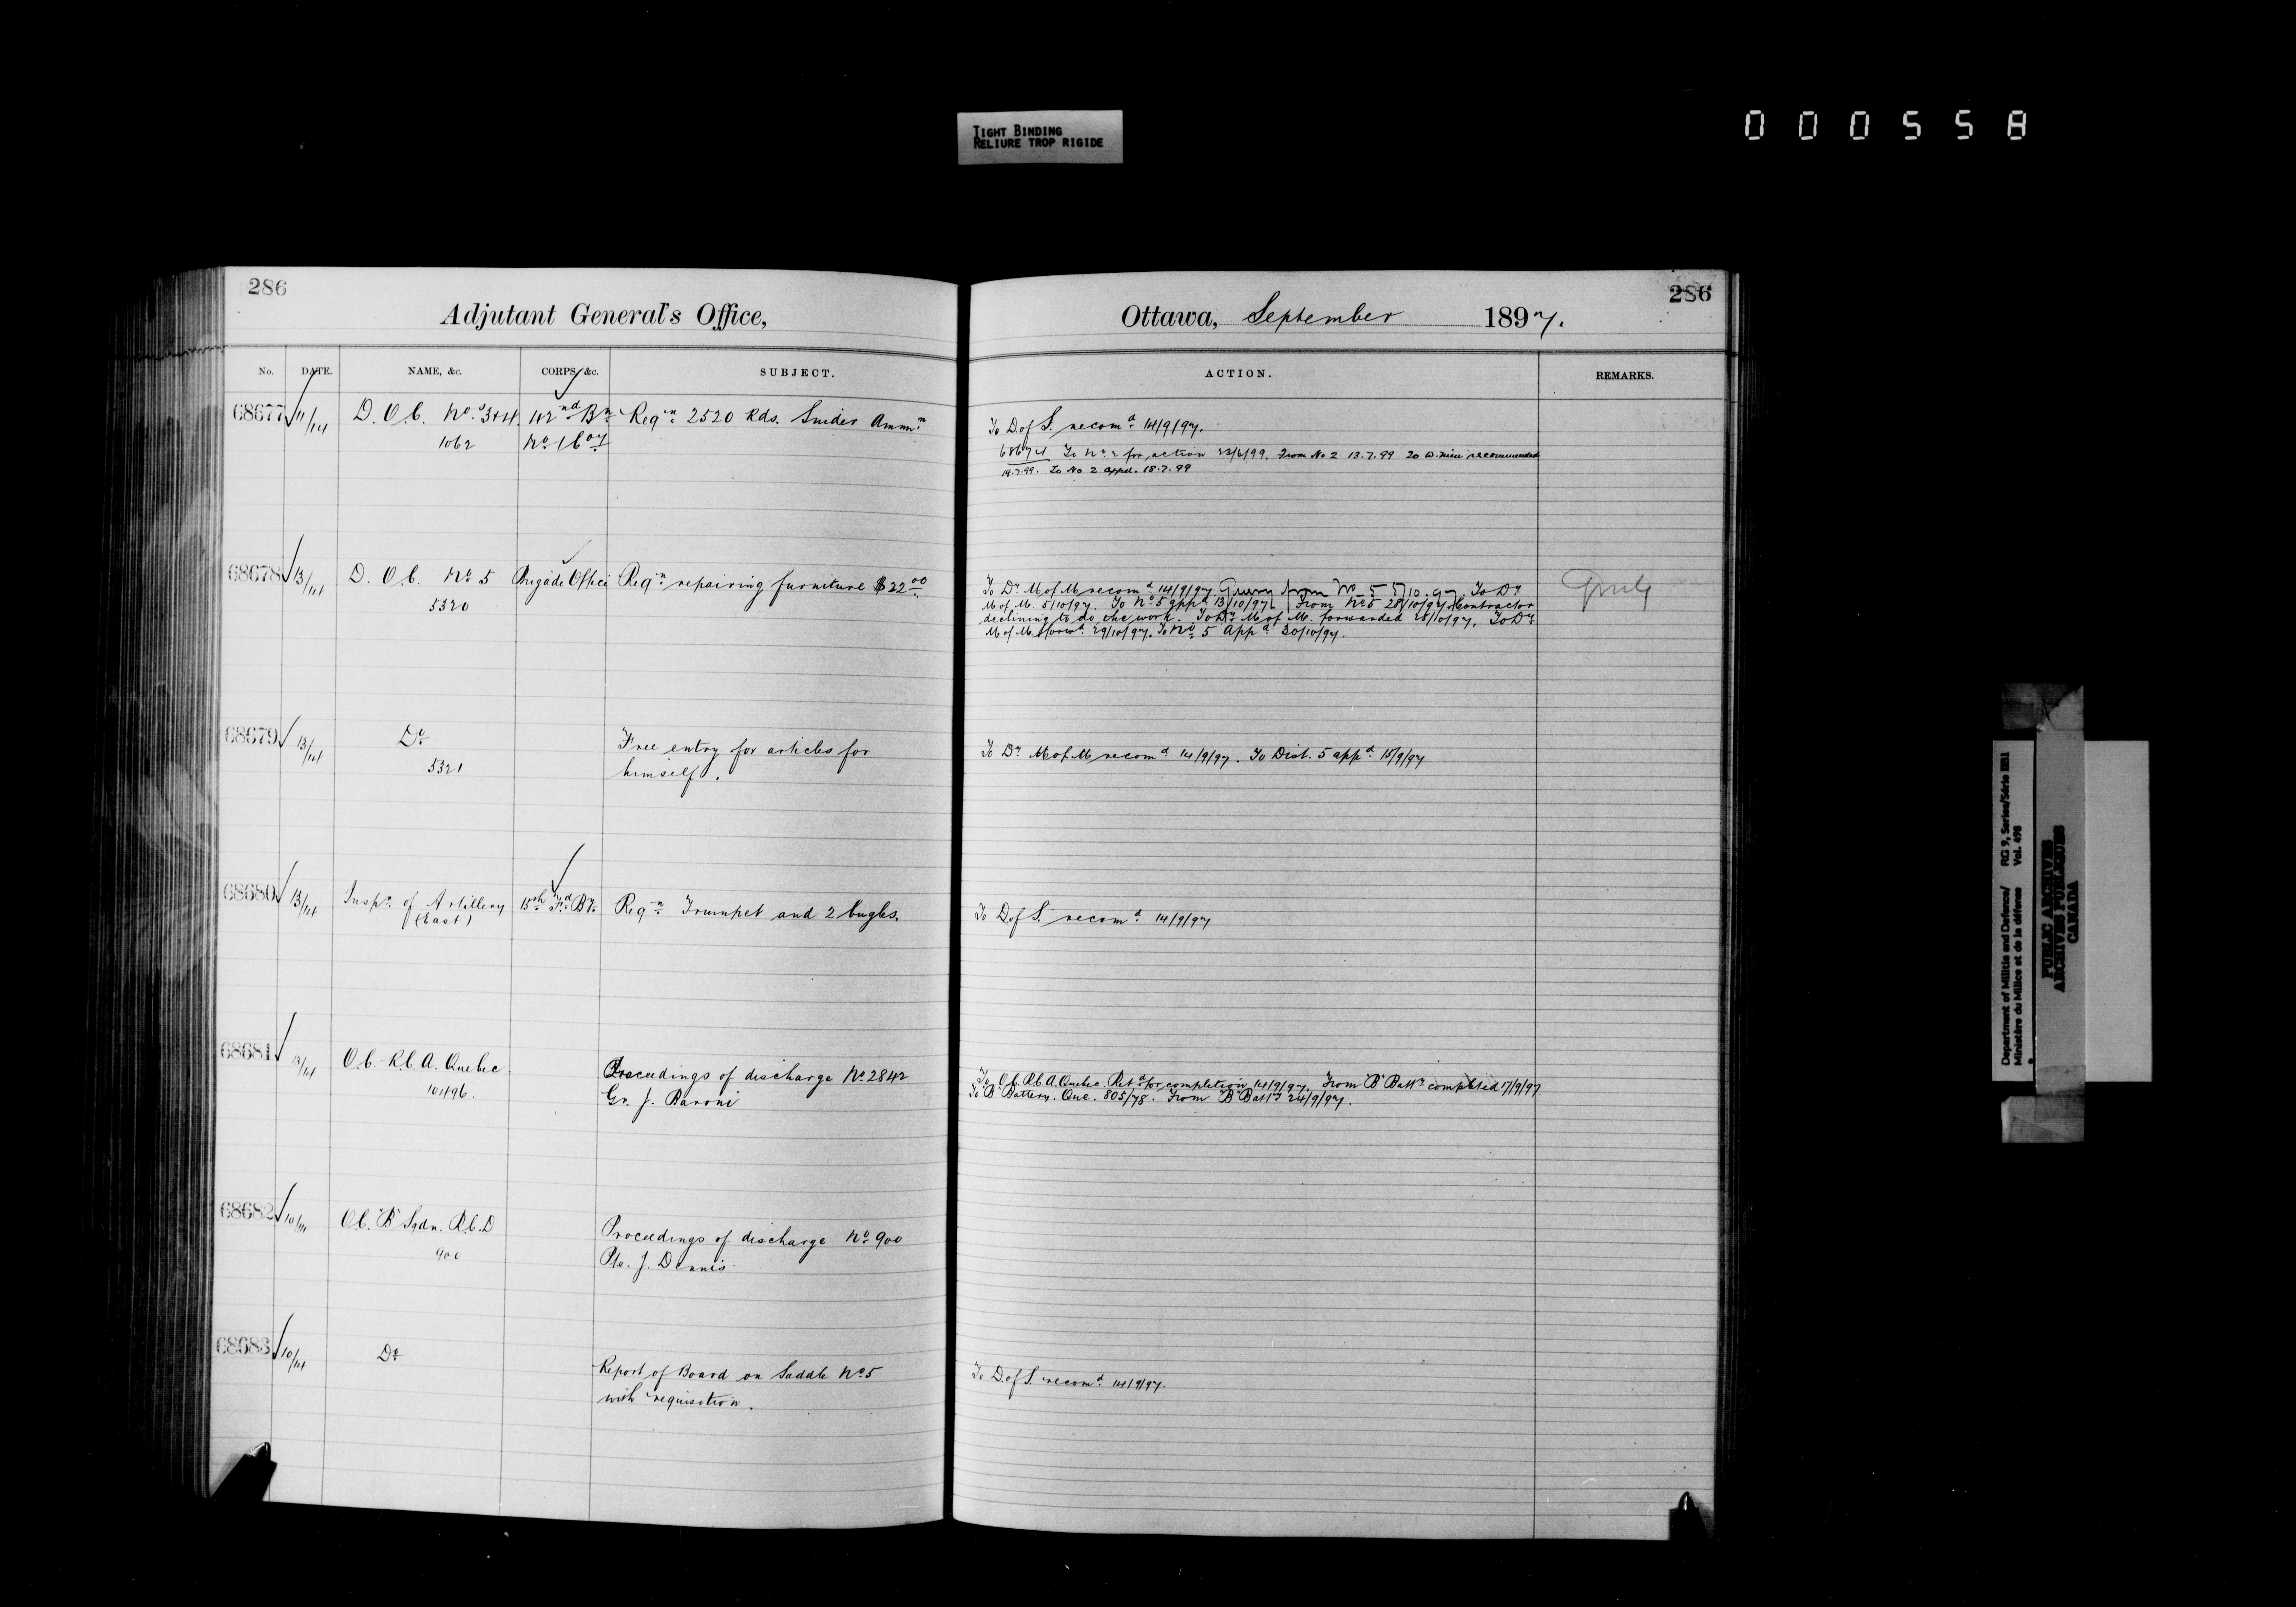 TIGHT BINDING
RELIURE TROP RIGIDE
000558
286
Adjutant General's Office,
No. DATE. NAME, &c. CORPS, &c. SUBJECT.
68677 11/14 D.O.C. No. 3 & 4. 42nd Bn Reqn 2520 Rds. Snider Ammn
1062 No 1 Coy
68678 13/14 D.O.C. No 5 Brigade Office Reqn repairing furniture $22.00
5320
68679 13/14 Do Free entry for articles for
5321 himself.
68680 13/14 Inspr of Artillery 15th Fd By. Reqn Trumpet and 2 bugles.
(East)
68681 13/14 O.C. R.C.A. Quebec Proceedings of discharge No 2842
10496. Gr. J. Baroni
68682 10/14 O.C. "B" Sqdn. R.C.D Proceedings of discharge No 900
900 Pte. J. Dennis
68683 10/14 Do Report of Board on Saddle No 5
with requisition.
286
Ottawa, September 1897.
ACTION. REMARKS.
To D of S. recomd 14/9/97.
68674 To No 2 for action 22/6/99. From No 2 13.7.99 To D. recommended
14.7.99. To No 2 appd. 18.7.99
To Dr M of M recomd 14/9/97 from No 5 5/10.97. To Dr
M of M. 5/10/97. To No 5 appd 13/10/97. From No 5 28/10/97 Contractor
declining to do the work. To Dr M of M. forwarded 28/10/97. To Dr
M of M. forwd 29/10/97. To No 5 Appd 30/10/97.
To Dr M of M recomd 14/9/97. To Dist. 5 appd 15/9/97
To D of S. recomd 14/9/97
To O.C. R.C.A. Quebec Retd for completion 14/9/97. From "B" Batty completed 17/9/97.
To "B" Battery. Que. 805/78. From "B" Batty 24/9/97.
To D of S. recomd 14/9/97.
Department of Militia and Defence/ RG 9, Series/Série IIB1
Ministère du Milice et de la défense Vol. 498
PUBLIC ARCHIVES
ARCHIVES PUBLIQUES
CANADA